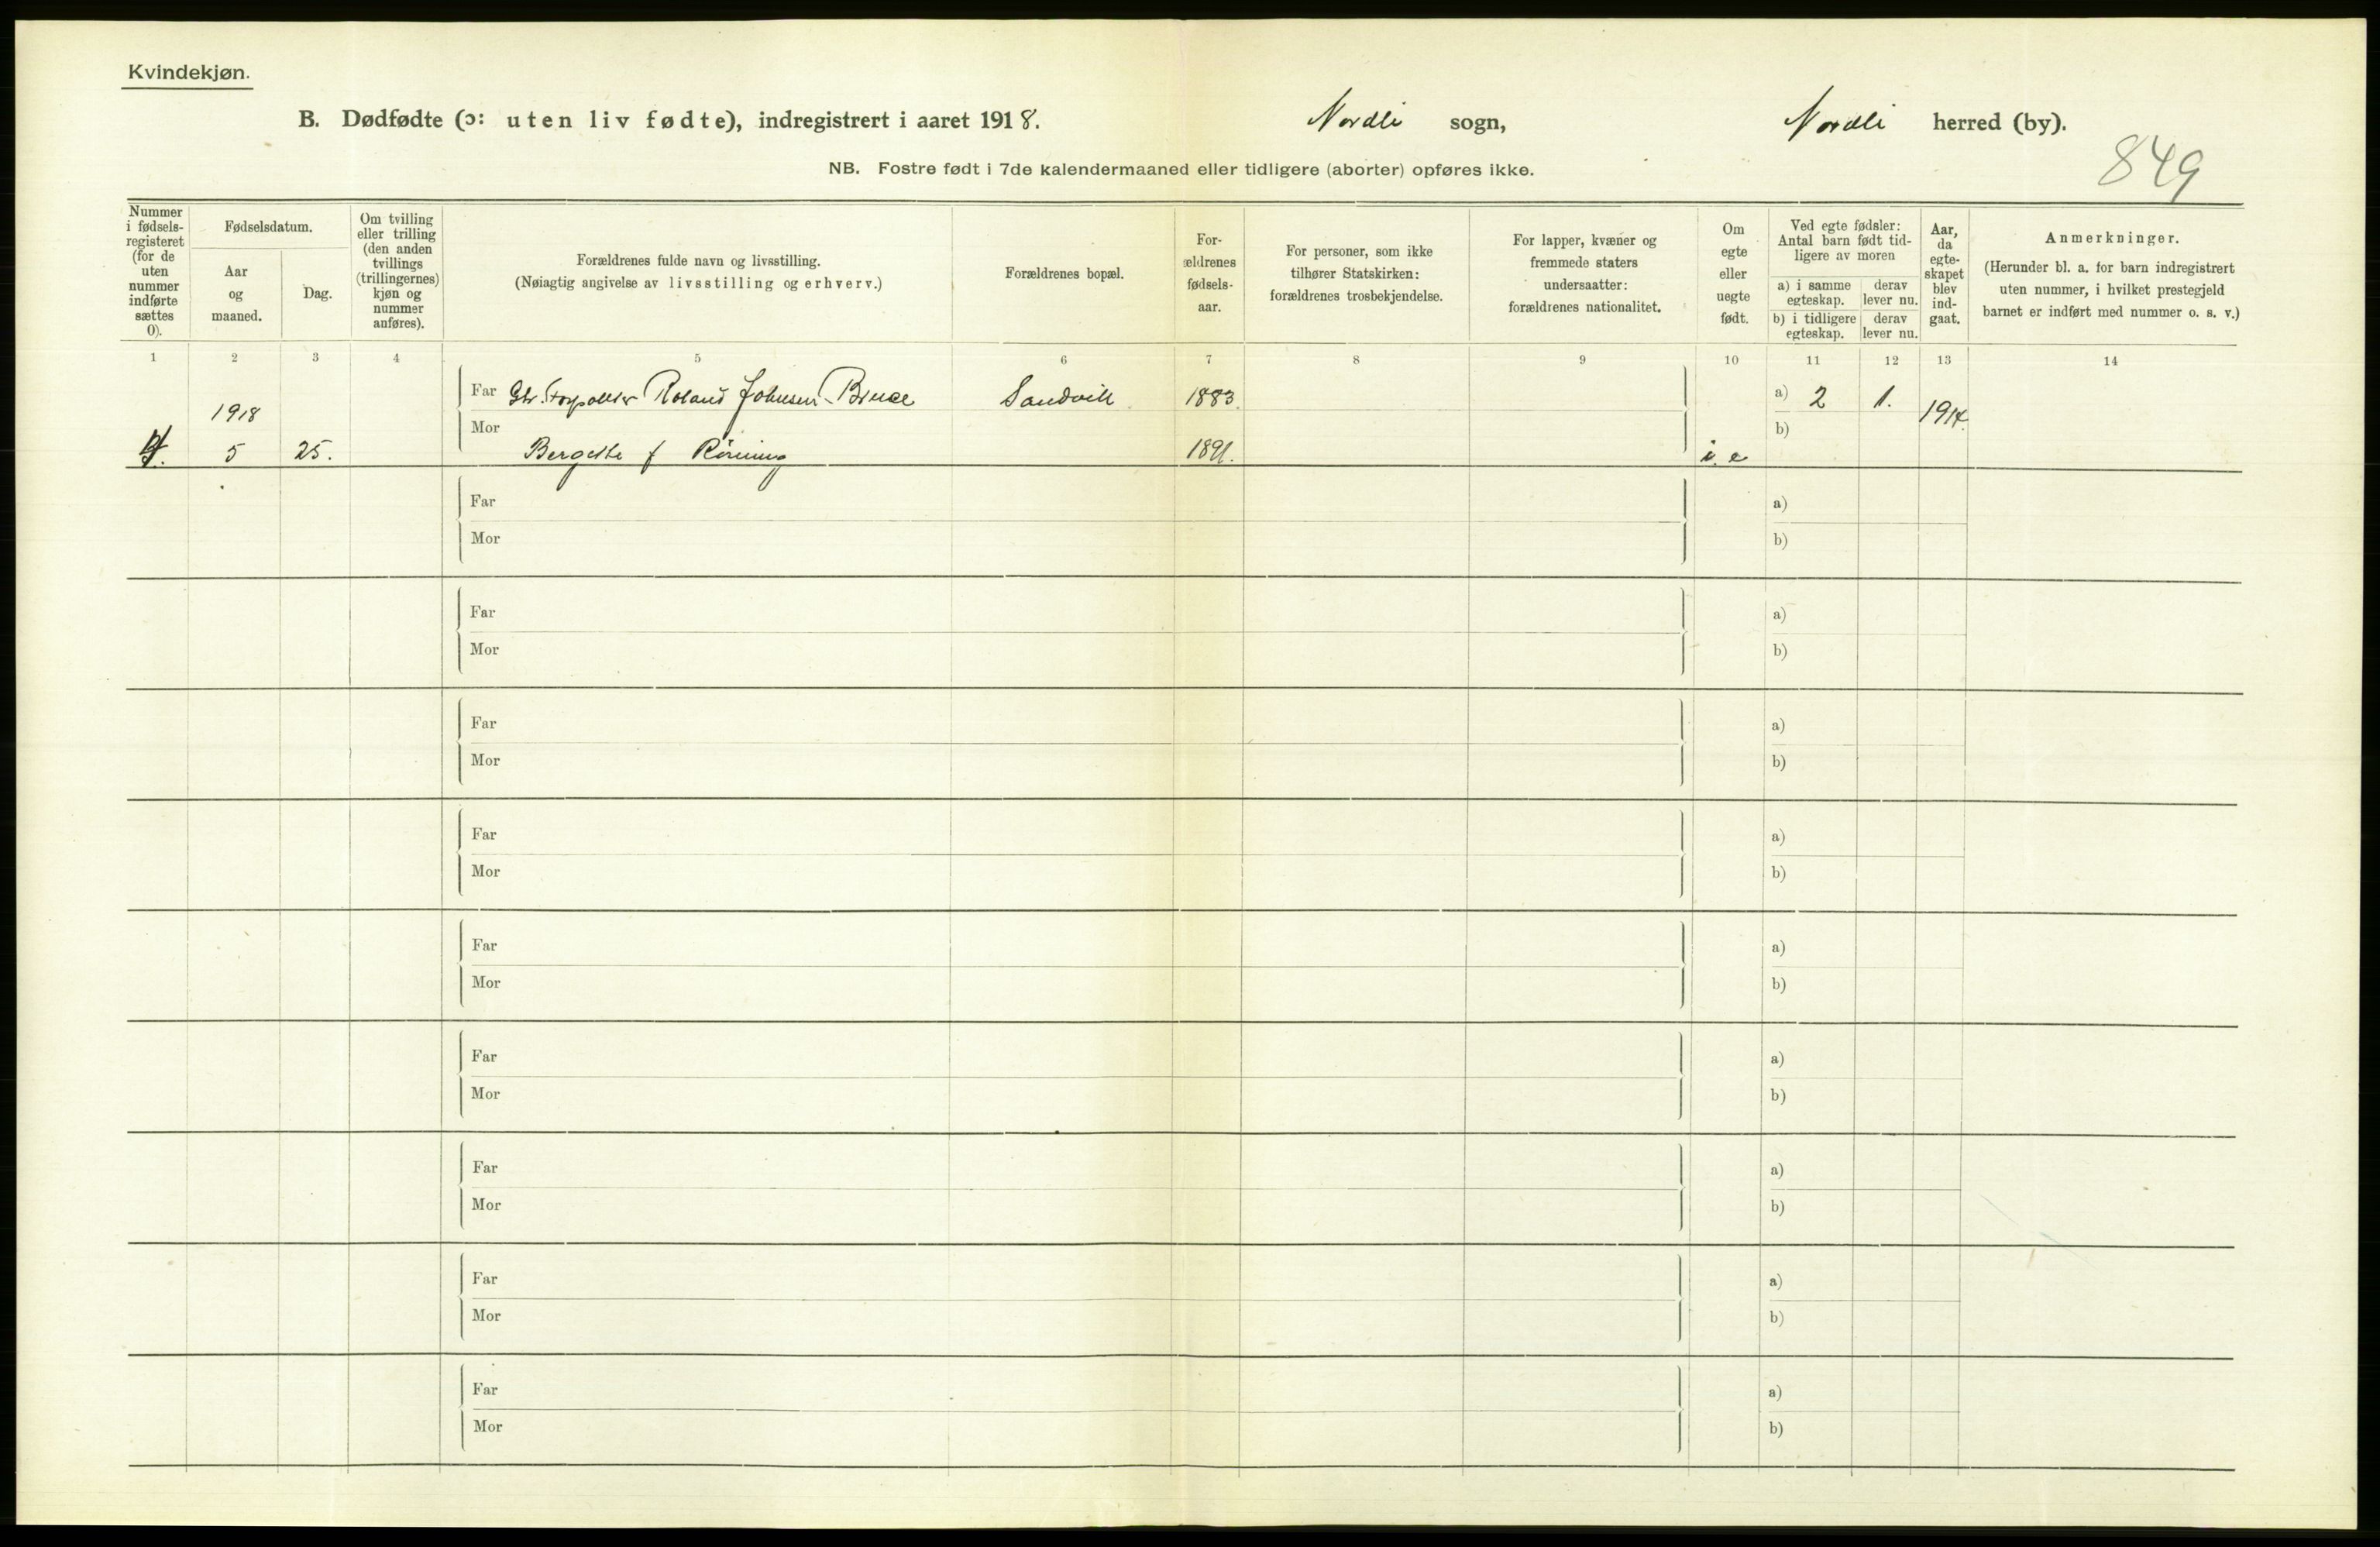 Kvindekjøn.
B. Dødfødte (ɔ: uten liv fødte), indregistrert i aaret 1918. Nordli sogn, Nordli herred (by).
849
NB. Fostre født i 7de kalendermaaned eller tidligere (aborter) opføres ikke.
Nummer i fødsels-registeret (for de uten nummer indførte sættes 0).
Fødselsdatum.
Aar og maaned.
Dag.
Om tvilling eller trilling (den anden tvillings (trillingernes) kjøn og nummer anføres).
Forældrenes fulde navn og livsstilling.
(Nøiagtig angivelse av livsstilling og erhverv.)
Forældrenes bopæl.
For-ældrenes fødsels-aar.
For personer, som ikke tilhører Statskirken: forældrenes trosbekjendelse.
For lapper, kvæner og fremmede staters undersaatter: forældrenes nationalitet.
Om egte eller uegte født.
Ved egte fødsler: Antal barn født tid-ligere av moren
a) i samme egteskap. derav lever nu.
b) i tidligere egteskap. derav lever nu.
Aar, da egte-skapet blev ind-gaat.
Anmerkninger.
(Herunder bl. a. for barn indregistrert uten nummer, i hvilket prestegjeld barnet er indført med nummer o. s. v.)
1 2 3 4 5 6 7 8 9 10 11 12 13 14
Far Roland Johnsen Bruce Sandvik 1883. a) 2 1.
1918 1914.
Mor b)
5 25. Bergitte f Röining 1891. i. e
Far a)
Mor b)
Far a)
Mor b)
Far a)
Mor b)
Far a)
Mor b)
Far a)
Mor b)
Far a)
Mor b)
Far a)
Mor b)
Far a)
Mor b)
Far a)
Mor b)